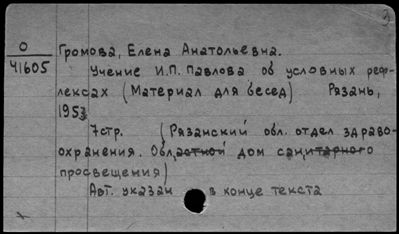 3
О
41605
Громова, Елена Анатольевна.
Учение И.П. Павлова об условных рефлексах (Материал для бесед) Рязань,
1953
7стр. (Рязанский обл. отдел здраво-
охранения. Областной дом санитарного
просвещения)
Авт. указан в конце текста